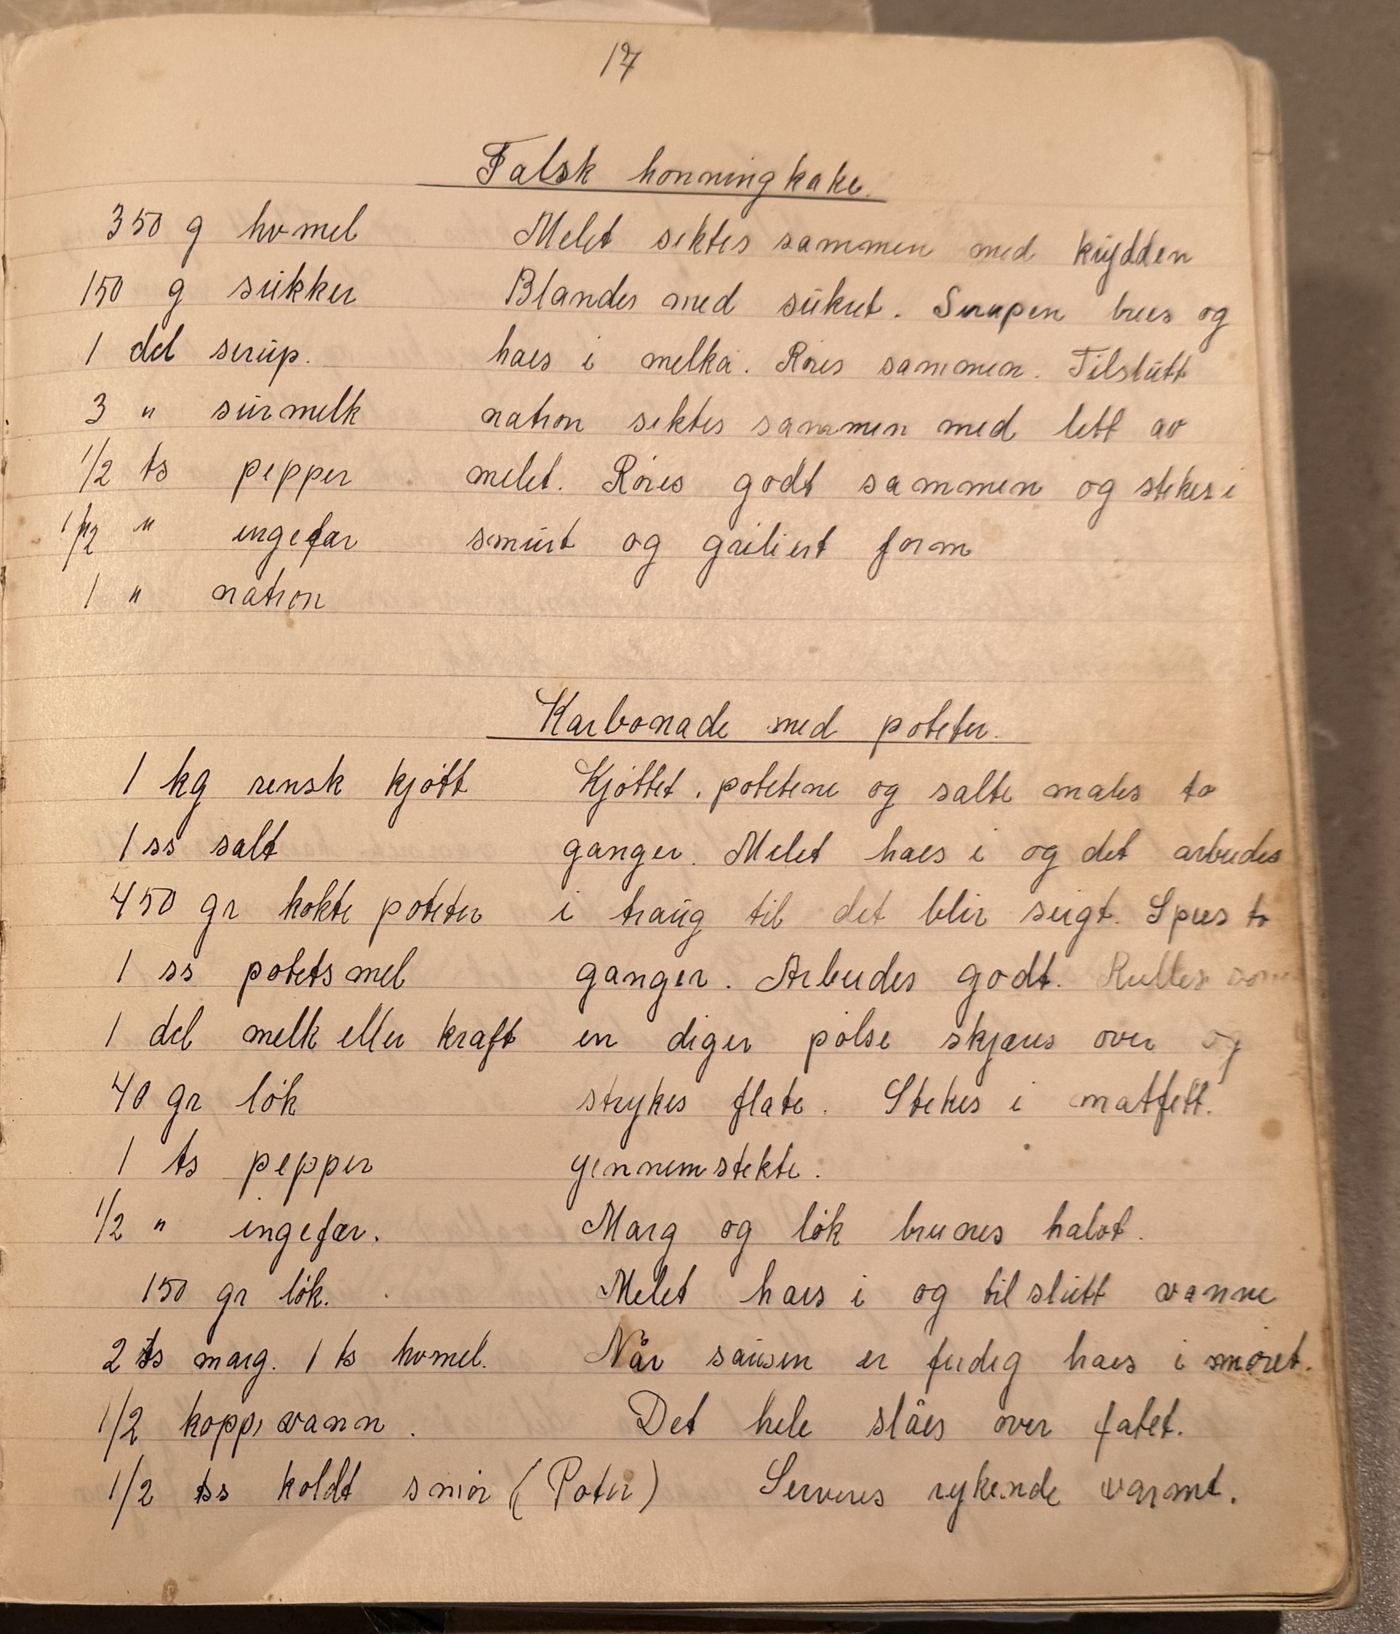 17
Falsk honningkake.
350 g hvmel Melet siktes sammen med krydden
150 g sukker Blandes med sukret. Sirupen has og
1 del sirup. haes i melka. Røres sammen. Tilslutt
3 " surmelk natron siktes sammen med litt av
1/2 ts pepper melet. Røres godt sammen og stekes i
1/2 " ingefær smurt og griliert form
1 " natron
Karbonade med poteter.
1 kg rensk kjøtt Kjøttet, potetene og salte males to
1 ss salt ganger. Melet haes i og det arbeides
450 gr kokte poteter i traug til det blir seigt. Spees to
1 ss potetsmel ganger. Arbeides godt. Rulles som
1 del melk eller kraft en diger pølse skjæres over og
40 gr løk strykes flate. Stekes i matfett.
1 ts pepper gjennemstekte.
1/2 " ingefær. Marg og løk brunes halvt.
150 gr løk. Melet haes i og tilslutt vanne
2 ts marg. 1 ts hvmel. Når sausen er ferdig haes i smøret.
1/2 kopp vann. Det hele slåes over fatet.
1/2 ss koldt smør (Poter) Serveres rykende varmt.